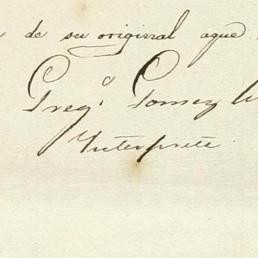 de su original aque
Greg.o Gomez
Interprete